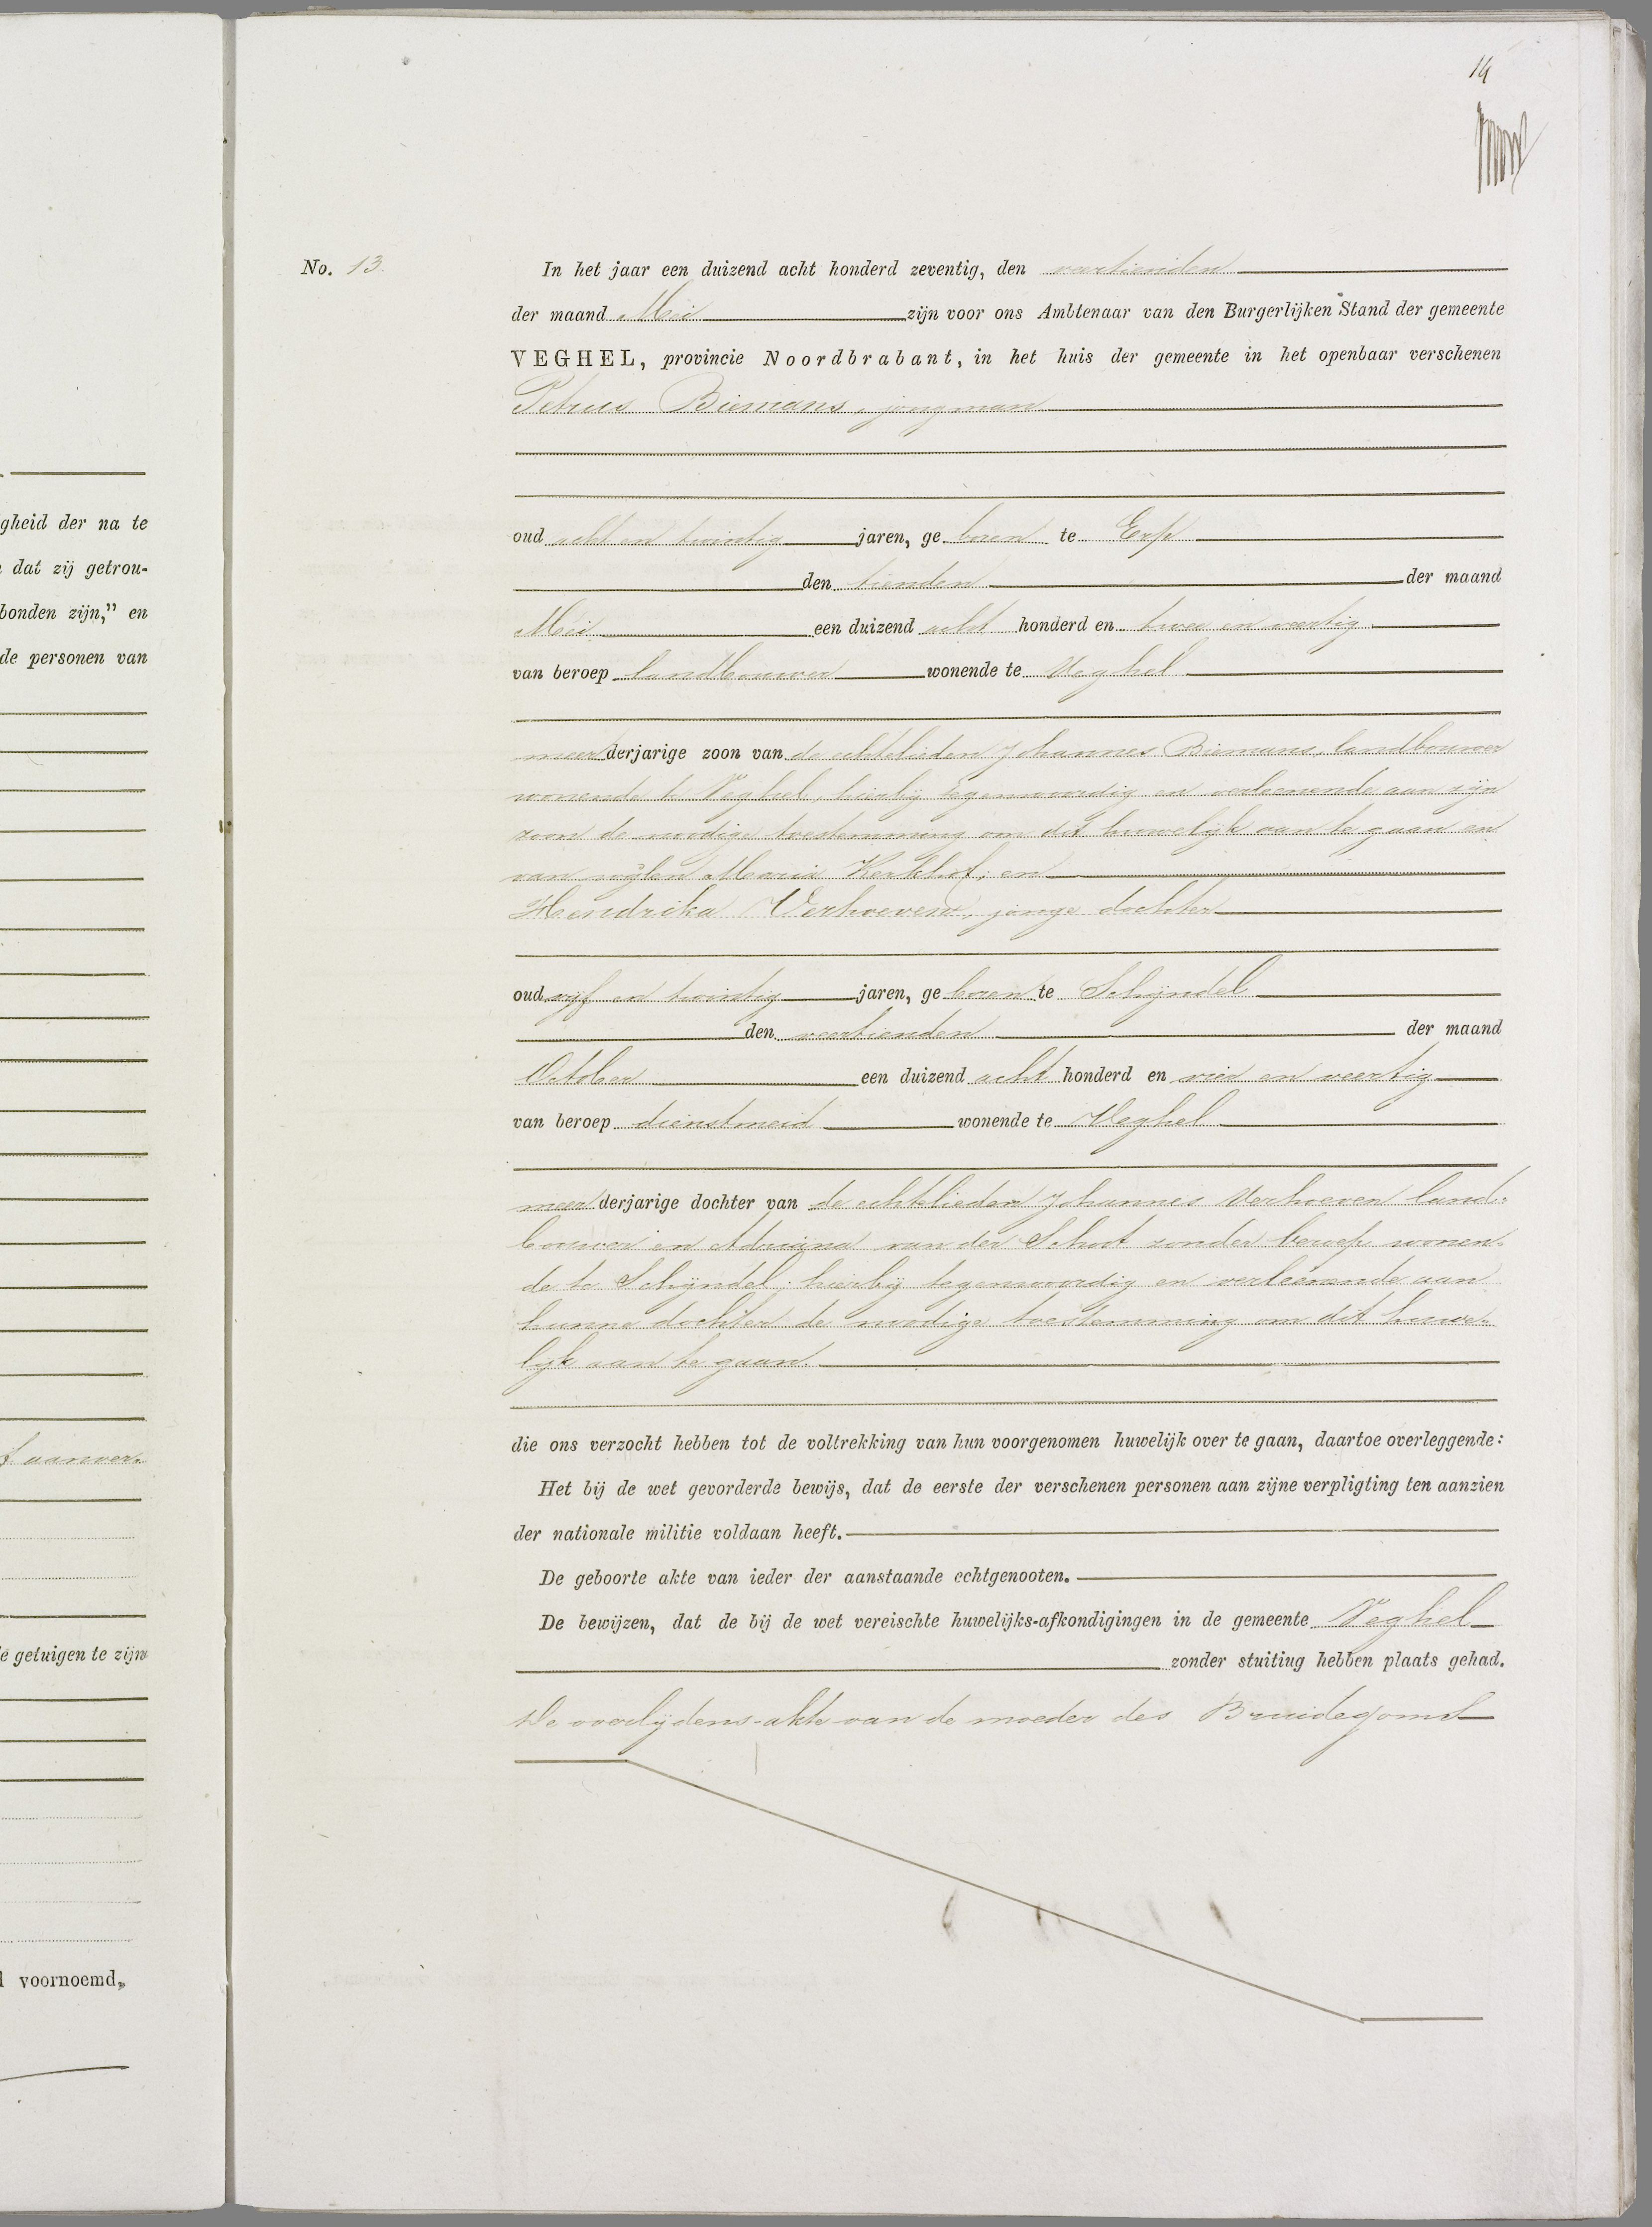 14
No. 13.
In het jaar een duizend acht honderd zeventig, den veertienden
der maand Mei zijn voor ons Ambtenaar van den Burgerlijken Stand der gemeente
VEGHEL, provincie Noordbrabant, in het huis der gemeente in het openbaar verschenen
Petrus Biemans, jongman
oud acht en twintig jaren, ge boren te Erp
den tienden der maand
Mei een duizend acht honderd en twee en veertig
van beroep landbouwer wonende te Veghel
meerderjarige zoon van de echtelieden Johannes Biemans, landbouwer
wonende te Veghel, hierbij tegenwoordig en verleenende aan zijn
zoon de noodige toestemming om dit huwelijk aan te gaan en
van wijlen Maria Kerkhof; en
Hendrika Verhoeven, jonge dochter
oud vijf en twintig jaren, ge boren te Schijndel
den veertienden der maand
October een duizend acht honderd en vier en veertig
van beroep dienstmeid wonende te Veghel
meerderjarige dochter van de echtelieden Johannes Verhoeven land-
bouwer en Adriana van der Schoot zonder beroep wonen-
de te Schijndel; hierbij tegenwoordig en verleenende aan
hunne dochter de noodige toestemming om dit huwe-
lijk aan te gaan.
die ons verzocht hebben tot de voltrekking van hun voorgenomen huwelijk over te gaan, daartoe overleggende:
Het bij de wet gevorderde bewijs, dat de eerste der verschenen personen aan zijne verpligting ten aanzien
der nationale militie voldaan heeft.
De geboorte akte van ieder der aanstaande echtgenooten.
De bewijzen, dat de bij de wet vereischte huwelijks-afkondigingen in de gemeente Veghel
zonder stuiting hebben plaats gehad.
De overlijdens-akte van de moeder des Bruidegoms
gheid der na te
dat zij getrou-
bonden zijn," en
de personen van
aanver-
e getuigen te zijn
voornoemd,